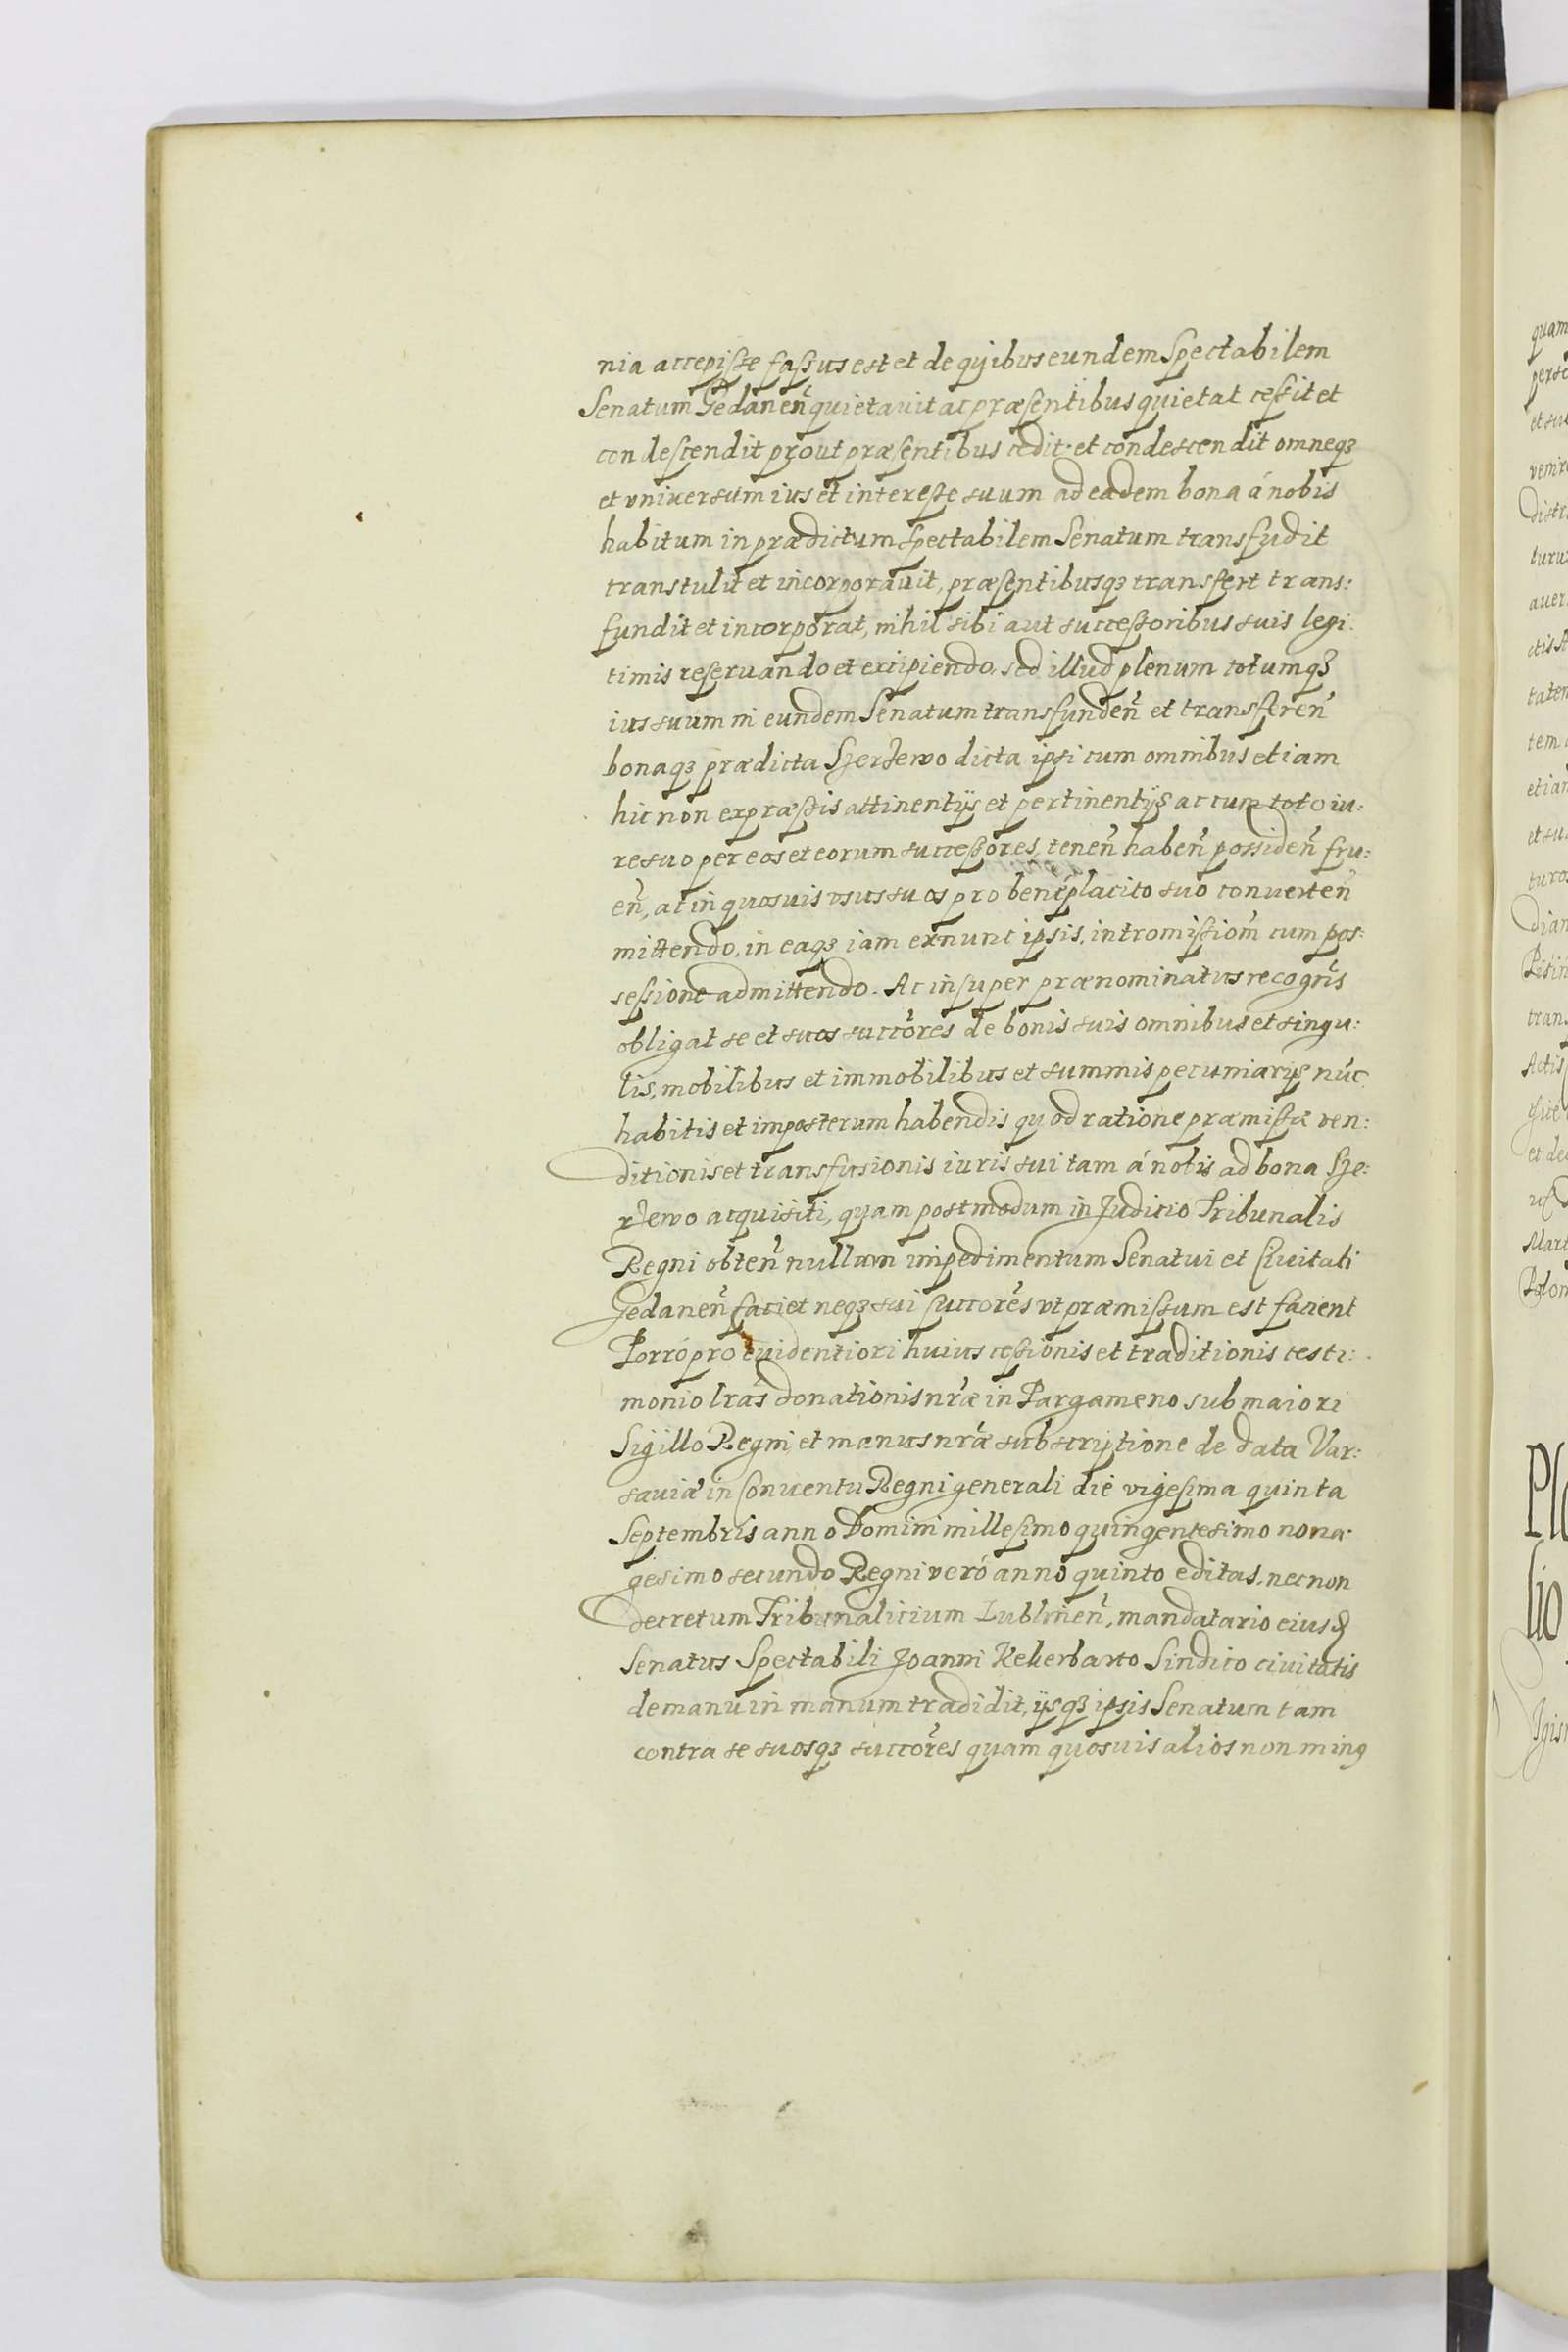 nia accepisse fassus est et de quibus eundem Spectabilem
Senatum Gedanen̄ quietauit ac præsentibus quietat cessit et
condescendit prout præsentibus cedit et condescendit omneqꝫ
et vniuersum ius et interesse suum ad eadem bona á nobis
habitum in prædictum spectabilem Senatum transfudit
transtulit et incorporauit, præsentibusqꝫ transfert trans:
fundit et incorporat, nihil sibi aut successoribus suis legi:
timis reseruando et excipiendo, sed illud plenum totumqꝫ
ius suum in eundem Senatum transfunden̄ et transferen̄
bonaqꝫ prædicta Szerzewo dicta ipsi cum omnibus etiam
hic non expræssis attinentijs et pertinentijs ac cum toto iu:
re suo per eos et eorum successores, tenen̄ haben̄ possiden̄ fru:
en̄, ac in quosuis vsus suos pro beneplacito suo conuerten̄
mittendo, in eaqꝫ iam exnunc ipsis, intromissiom̄ cum pos:
sessione admittendo. Ac insuper prænominatus recogn̄s
obligat se et suos succōres de bonis suis omnibus et singu:
lis, mobilibus et immobilibus et summis pecuniarijs nūc
habitis et imposterum habendis quod ratione præmissæ ven:
ditionis et transfusionis iuris sui tam á nobis ad bona Sze:
rzewo acquisiti, quam postmodum in Judicio Tribunalis
Regni obten̄ nullum impedimentum Senatui et Ciuitati
Gedanen̄ faciet neqꝫ sui succōres vt præmissum est facient
Porró pro euidentiori huius cessionis et traditionis testi:
monio lr̄as donationis nr̄æ in Pargameno sub maiori
Sigilló Regni, et manus nr̄æ subscriptione de data Var:
sauiæ in Conuentu Regni generali die vigesima quinta
Septembris anno Domini millesimo quingentesimo nona:
gesimo secundo Regni veró anno quinto editas, necnon
decretum Tribunalicium Lublinen̄, mandatario eiusd
Senatus Spectabili Joanni Kekerbarto Sindico ciuitatis
de manu in manum tradidit, ijsqꝫ ipsis Senatum tam
contra se suosqꝫ succōres quam quosuis alios non minꝯ